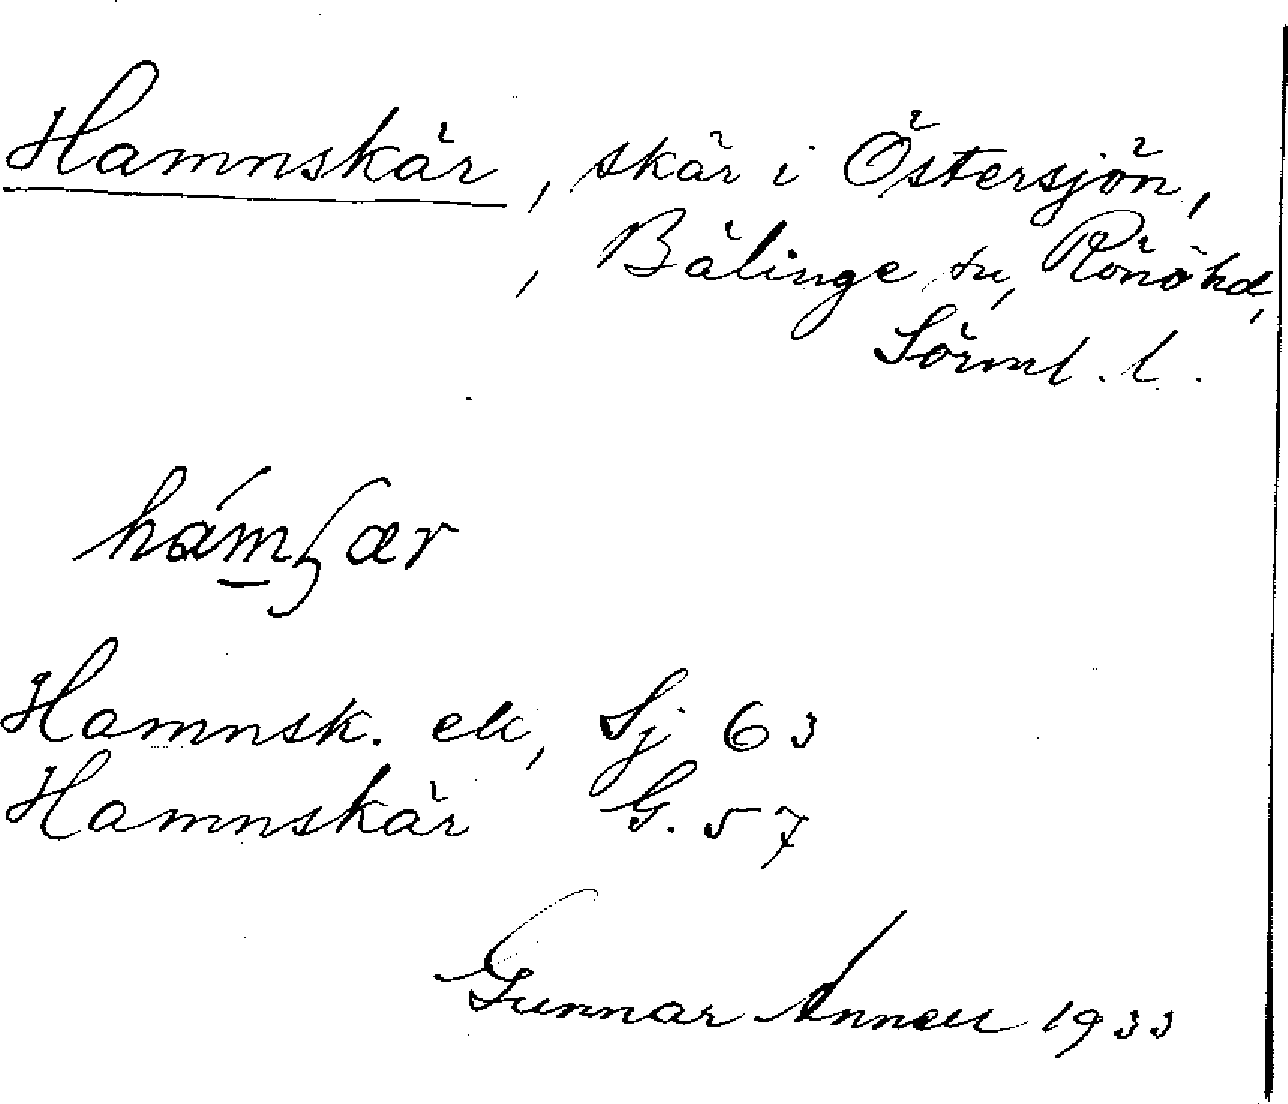 Hamnskär, skär i Östersjön,
, Bälinge sn, Rönö hd,
Sörml. l.
hámʃær
Hamnsk. ek, Sj 63
Hamnskär G. 57
Gunnar 1933